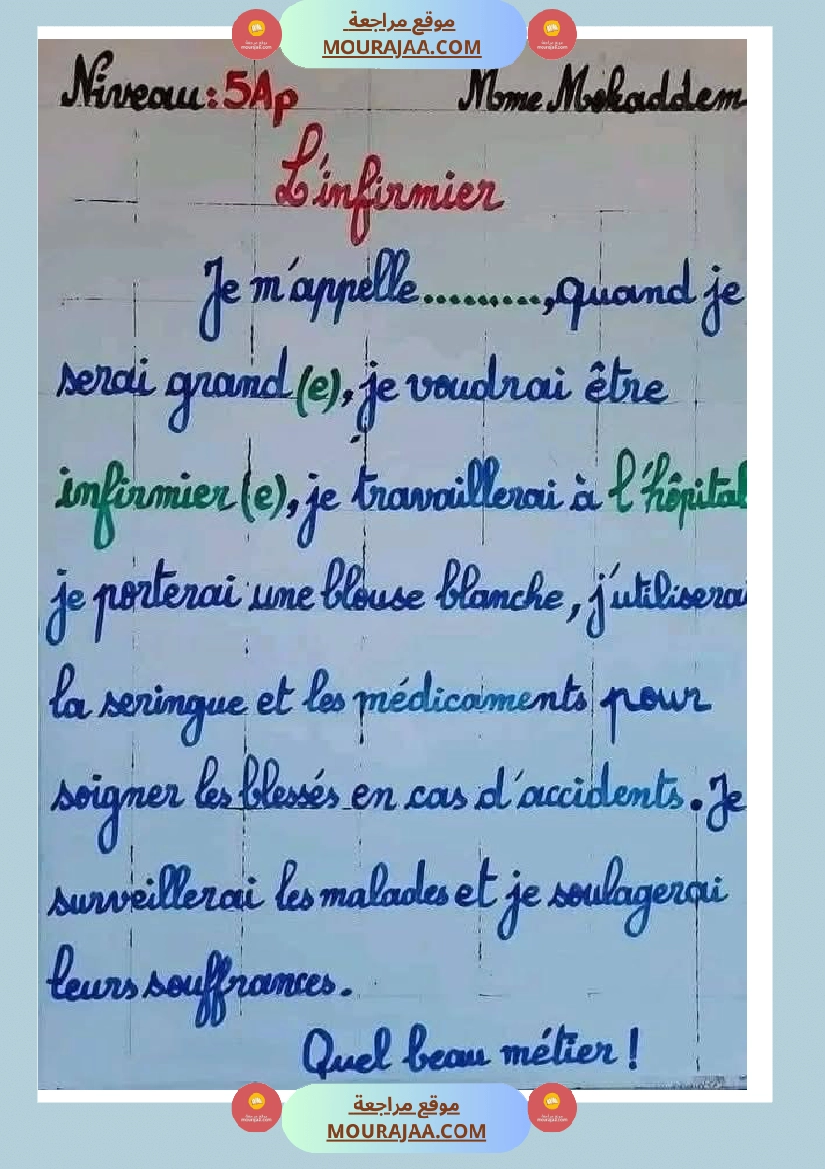 موقع مراجعة
MOURAJAA.COM
Niveau: 5Ap Mme Mokaddem
L'infirmier
Je m'appelle.........,quand je
serai grand(e), je voudrai être
infirmier(e), je travaillerai à l'hôpital
je porterai une blouse blanche, j'utiliserai
la seringue et les médicaments pour
soigner les blessés en cas d'accidents. Je
surveillerai les malades et je soulagerai
leurs souffrances.
Quel beau métier !
موقع مراجعة
MOURAJAA.COM